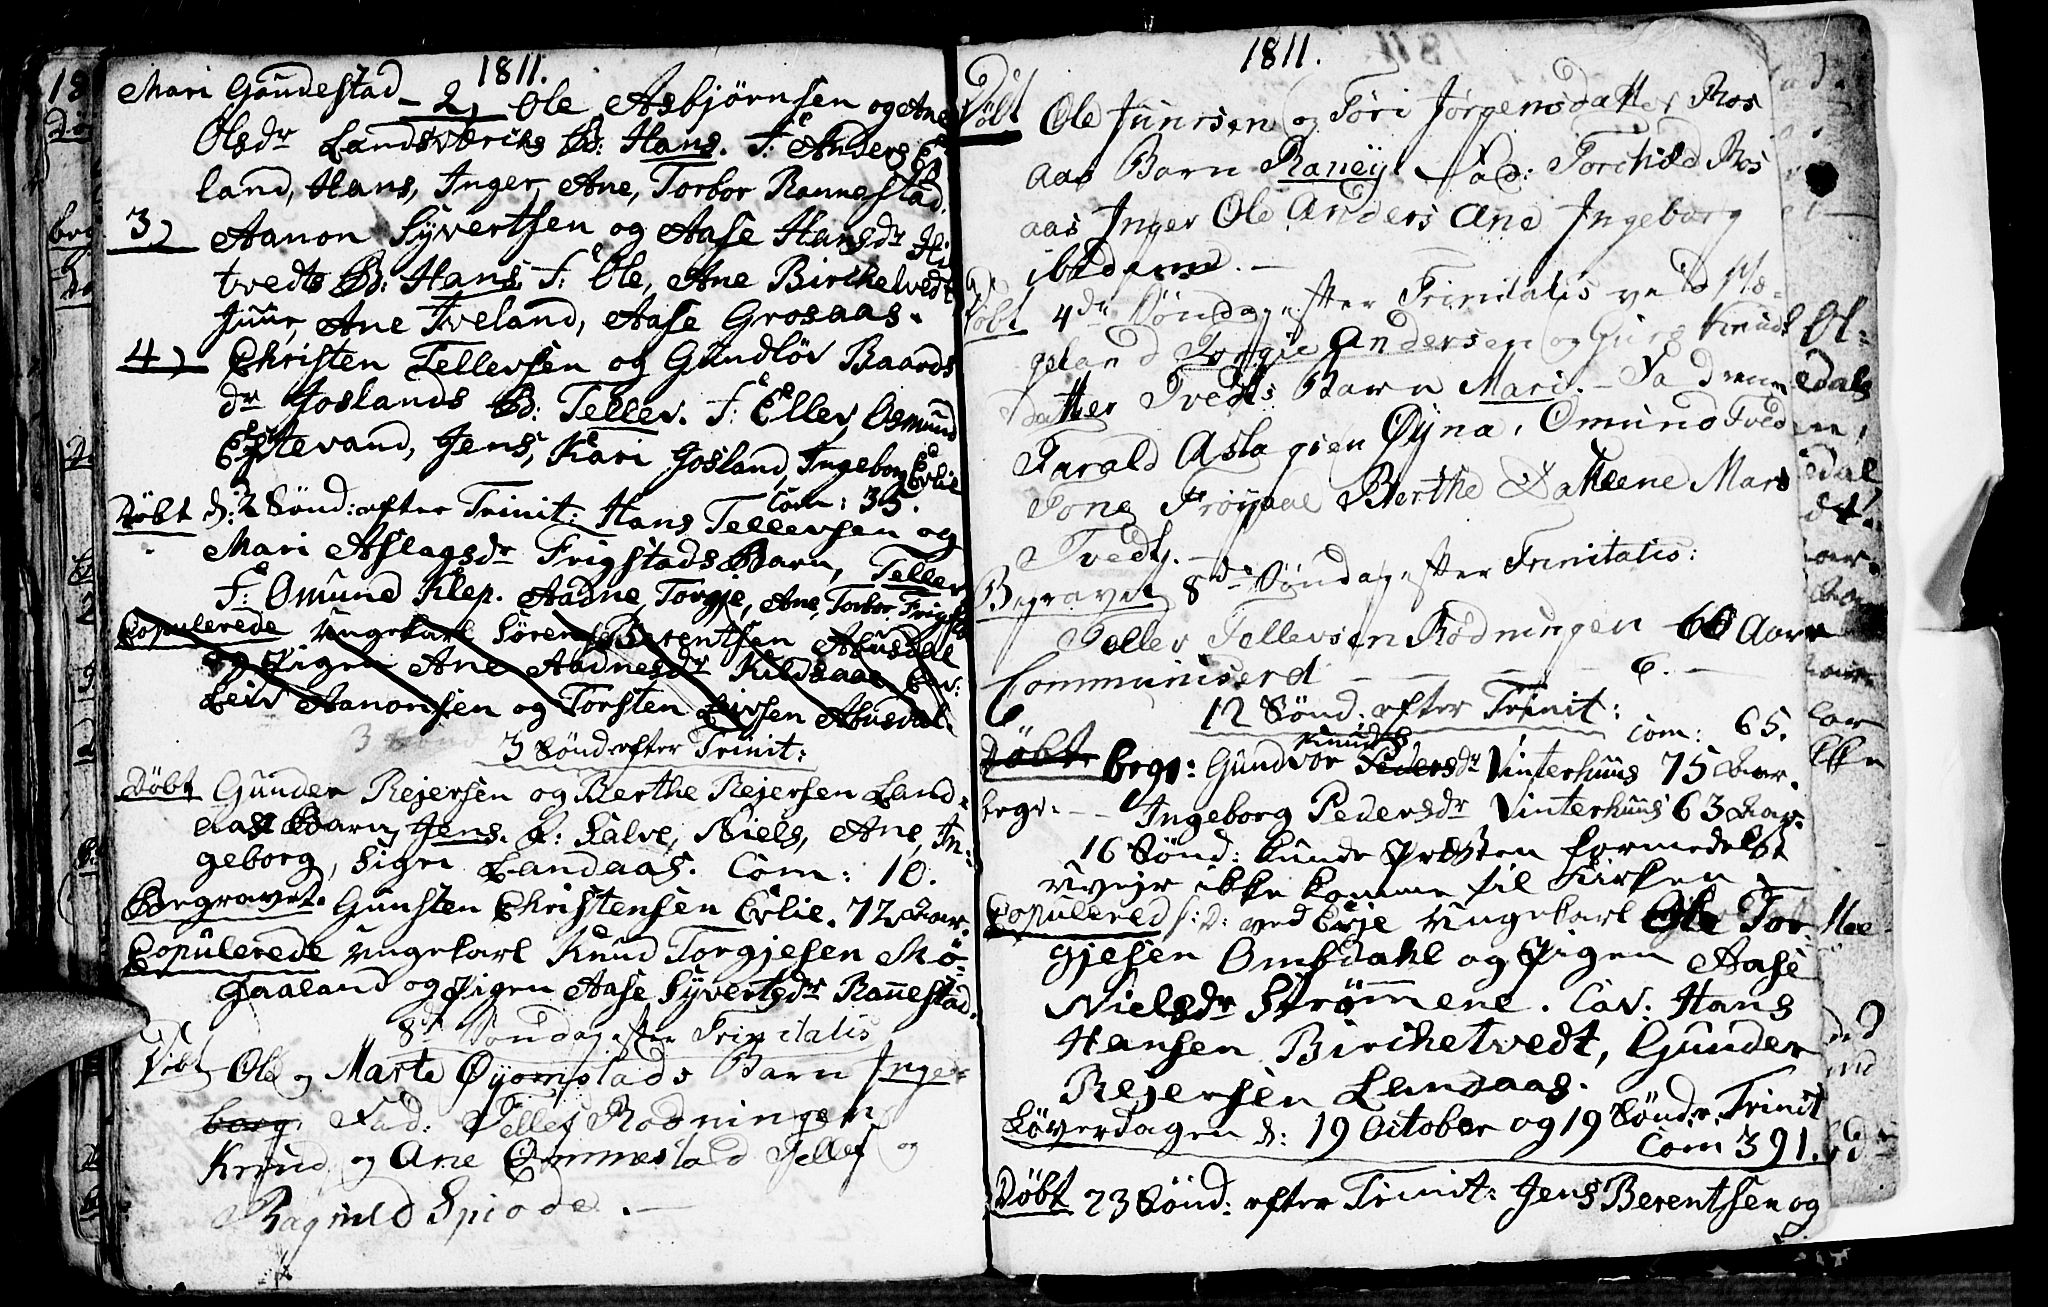 1811.
Mari Gaudestad
2, Ole Asbjörnsen og Ane
Olsdr Landsværchs B: Hans. F: Anders
land, Hans, Inger, Ane, Torbor Rannestad.
3, Aanon Syvertsen og Aase Hansdr
tvedts B: Hans F: Ole, Ane Birchetvedt
Juur, Ane Iveland, Aase Grosaas.
4, Christen Tellevsen og Gundlöv Baards
dr Joslands B: Tellev. F: Ellev, Osmund
Eftevand, Jens, Kari Josland, Ingeborg Evlie
Com: 35.
Döbt d: 2 Sönd: after Trinit: Hans Tellevsen og
Mari Aslagsdr Frigstads Barn, Tellev
F: Omund Klep. Aadne, Torgje, Ane, Torbor Frigst
Copulerede ungekarl Sören Berentsen Abusdal
og Pigen Ane Aadnesdr Kildaas Cav:
Leiv Aanonsen og Torsten Leivsen Abusdal.
3 Sönd after Trinit:
Döbt Gunder Rejersen og Berthe Rejersen Land-
aas Barn, Jens. F: Salve, Niels, Ane, In-
geborg, Signe Landaas. Com: 10.
Begravet. Gunsten Christensen Evlie. 72 Aar.
Copulerede ungekarl Knud Torgjesen Mö-
gaaland og Pigen Aase Syvertsdr Rannestad.
8de Söndag efter Trinitatis
Döbt Ole og Marte Öyomstads Barn Inge-
borg. Fad: Tellef Rodningen
Knud og Ane Ommestad Tellef og
Ragnild Spiode.
1811.
Döbt Ole Juursen og Tori Jörgensdatter Ros
aas Barn Raneÿ Fad: Torchild Ros
aas Inger Ole Anders Ane Ingeborg
ibidem.
Döbt 4de Söndag efter Trinitatis ved Hæ-
geland Torgie Andersen og Guro Knuds
datter Tvedts Barn Mari. Faddrene
Tarald Aslagsen Öyna, Omund Tved
Tone Fröysaa Berthe Mari
Tvedt.
Begravet 8de Söndag efter Trinitatis:
Tellev Tellevsen Rödningen 60 Aar
Communiserd 6.
12 Sönd after Trinit:
Com: 65.
Döbt begr: Gundvor Pedersdr Knuds Vinterhuus 75 Aar.
begr. Ingeborg Pedersdr Vinterhuus 63 Aar.
16 Sönd: kunde Præsten formedelst
uvejr ikke komme til Kirken.
Copulered ved Evje ungekarl Ole Tor-
gjesen Omsdahl og Pigen Aase
Nielsdr Strömmene. Cav: Hans
Hansen Birchetvedt, Gunder
Rejersen Landaas.
Löverdagen d: 19 October og 19 Sönd: e: Trinit
Com 391.
Döbt 23 Sönd: after Trinit: Jens Berentsen og